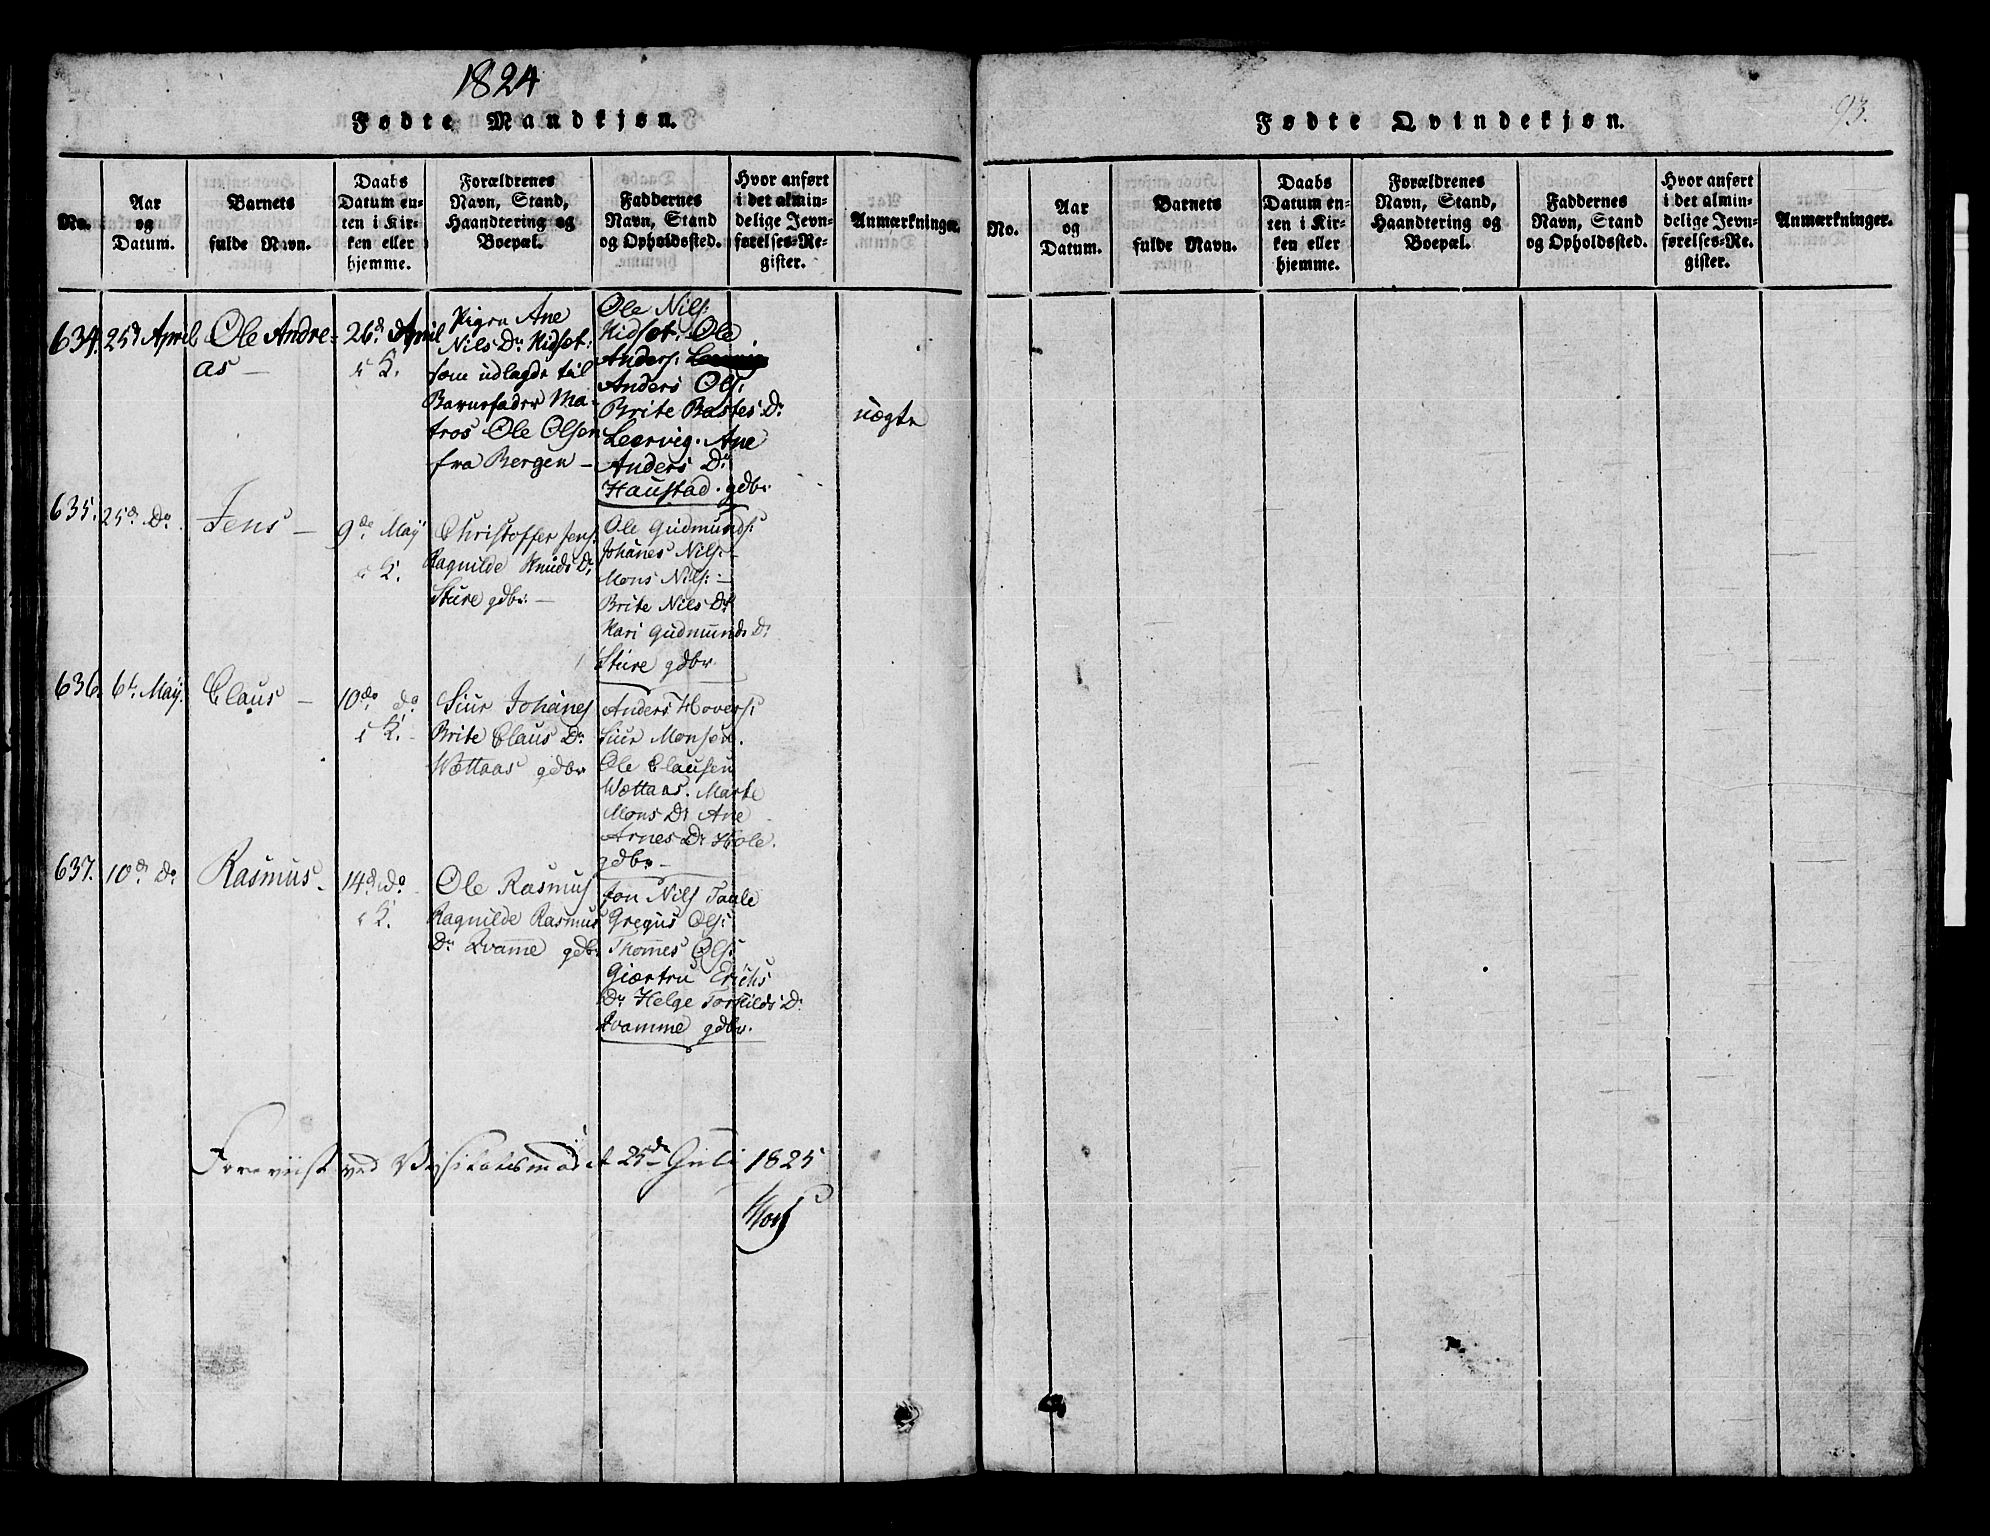 1824
Fødte Mandkjøn.
No.
Aar
og
Datum.
Barnets
fulde Navn.
Daabs
Datum en-
ten i Kir-
ken eller
hjemme.
Forældrenes
Navn, Stand,
Haandtering og
Boepæl.
Faddernes
Navn, Stand
og Opholdssted.
Hvor anført
i det almin-
delige Jevn-
førelses-Re-
gister.
Anmærkninger.
634. 25d April
Ole Andre-
as —
26d April
i K.
Pigen Ane
Nils Dr Kidset:
som udlagde til
Barnefader Ma-
tros Ole Olsen
fra Bergen —
Ole Nils:
Kidset. Ole
Anders:
Anders Ols:
Brite Bastes Dr
Leervig. Ane
Anders Dr
Haustad. gdbr
uægte
635. 25d Do
Jens —
9de Maÿ
i K.
Christoffer Jens:
Ragnilde Knuds Dr
Sture gdbr. —
Ole Gudmunds:
Johanes Nils: —
Mons Nils: —
Brite Nils Dr
Kari Gudmunds Dr
Sture gdbr.
636. 6t Maÿ
Claus —
10de do
i K. -
Siur Johanes
Brite Claus Dr
Wættaas gdbr
Anders Hovers:
Siur Monsen.
Ole Clausen
Wættaas. Marte
Mons Dr Ane
Arnes Dr Hole.
gdbr —
637. 10d Do
Rasmus -
14d do
i K.
Ole Rasmus
Ragnilde Rasmus
Dr Qvamme gdbr
Jon Nils Taule
Gregus Ols:
Thommes Ols:
Giærtru Erichs
Dr Helge Torkilds Dr
Qvamme gdbr.
Foreviist ved Visitatsmødet 25de Juli 1825
93.
Fødte Qvindekjøn.
No.
Aar
og
Datum.
Barnets
fulde Navn.
Daabs
Datum en-
ten i Kir-
ken eller
hjemme.
Forældrenes
Navn, Stand,
Haandtering og
Boepæl.
Faddernes
Navn, Stand
og Opholdssted.
Hvor anført
i det almin-
delige Jevn-
førelses-Re-
gister.
Anmærkninger.